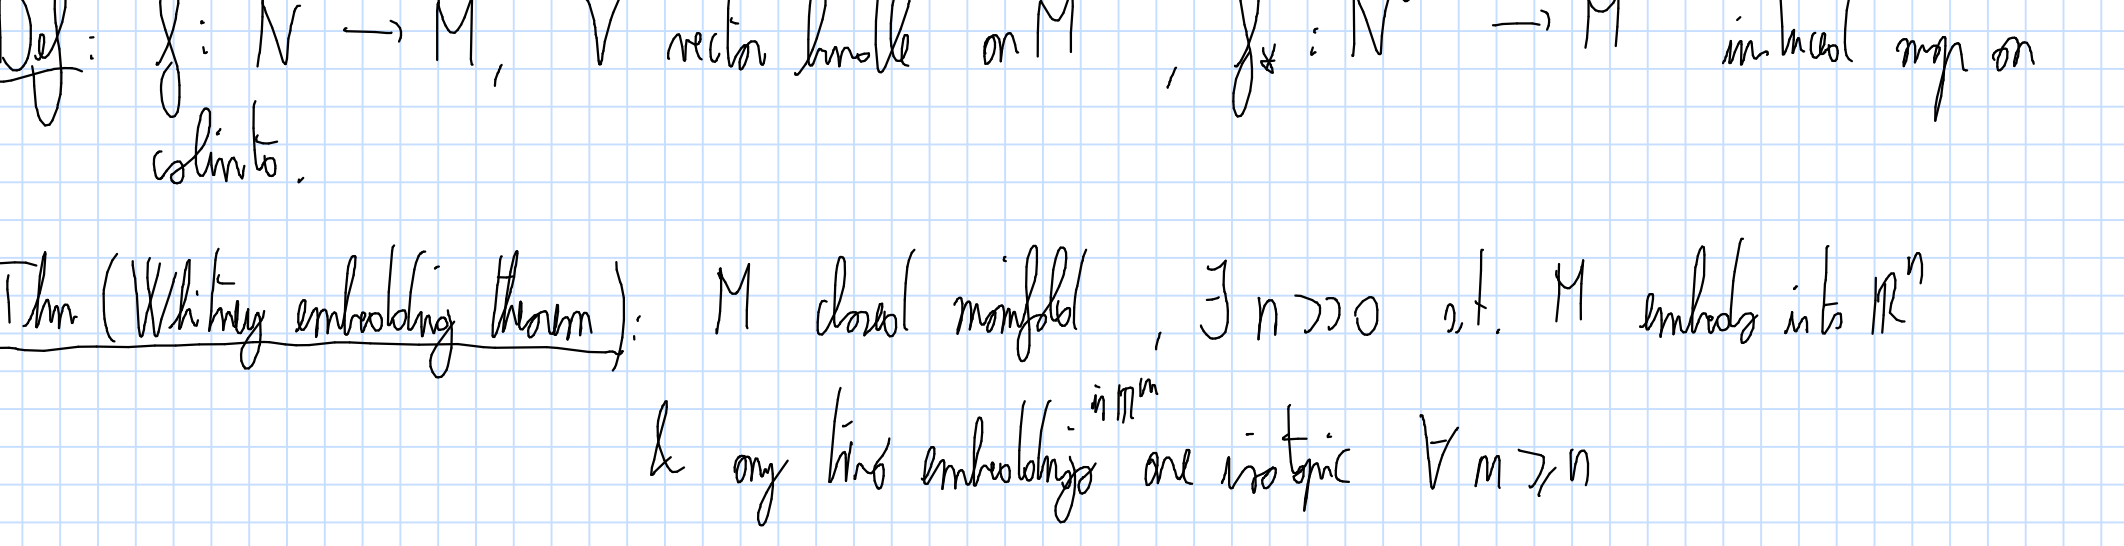 Def: f: N → M, V vector bundle on M, f_* : N → M induced map on
colimits.
Thm (Whitney embedding theorem): M closed manifold, ∃ n>>0 s.t. M embeds into ℝⁿ
in ℝᵐ
& any two embeddings are isotopic ∀ m ≥ n